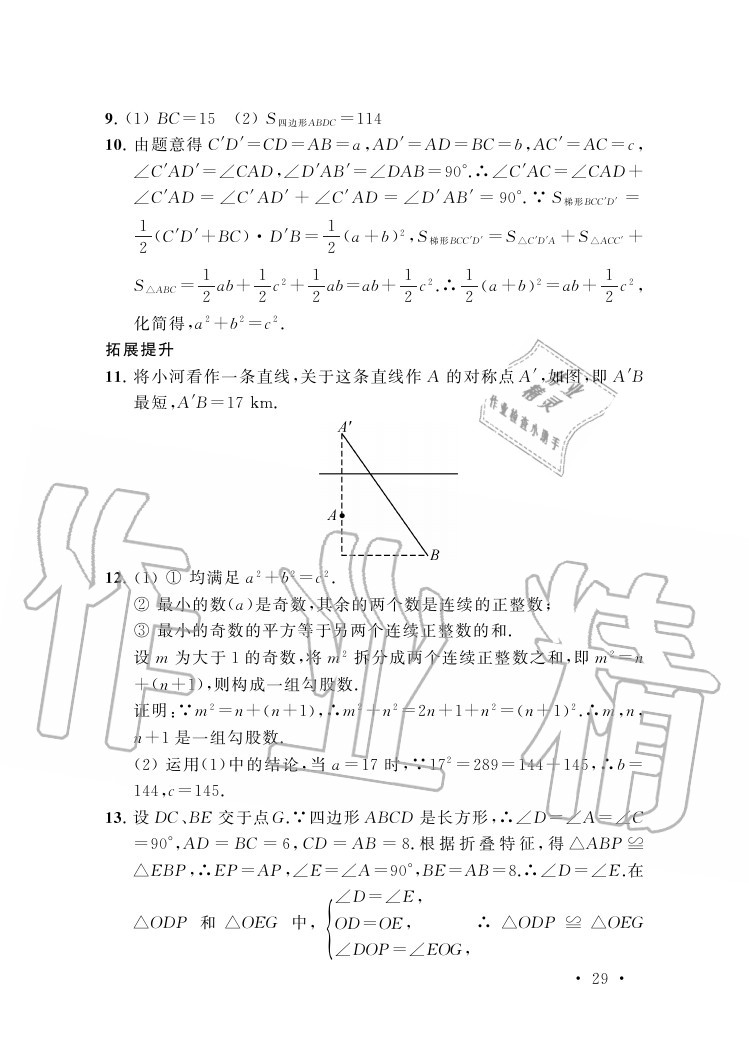 9. (1) BC=15  (2) S四边形ABDC=114
10. 由题意得 C′D′=CD=AB=a,AD′=AD=BC=b,AC′=AC=c,
∠C′AD′=∠CAD,∠D′AB′=∠DAB=90°.∴∠C′AC=∠CAD+
∠C′AD=∠C′AD′+∠C′AD=∠D′AB′=90°.∵S梯形BCC′D′=
1/2(C′D′+BC)·D′B=1/2(a+b)²,S梯形BCC′D′=S△C′D′A+S△ACC′+
S△ABC=1/2ab+1/2c²+1/2ab=ab+1/2c².∴1/2(a+b)²=ab+1/2c²,
化简得,a²+b²=c².
拓展提升
11. 将小河看作一条直线,关于这条直线作 A 的对称点 A′,如图,即 A′B
最短,A′B=17 km.
A′
A
B
12. (1) ① 均满足 a²+b²=c².
② 最小的数(a)是奇数,其余的两个数是连续的正整数;
③ 最小的奇数的平方等于另两个连续正整数的和.
设 m 为大于 1 的奇数,将 m² 拆分成两个连续正整数之和,即 m²=n
+(n+1),则构成一组勾股数.
证明:∵m²=n+(n+1),∴m²+n²=2n+1+n²=(n+1)².∴m,n,
n+1 是一组勾股数.
(2) 运用(1)中的结论.当 a=17 时,∵17²=289=144+145,∴b=
144,c=145.
13. 设 DC、BE 交于点G.∵四边形 ABCD 是长方形,∴∠D=∠A=∠C
=90°,AD=BC=6,CD=AB=8.根据折叠特征,得△ABP≌
△EBP,∴EP=AP,∠E=∠A=90°,BE=AB=8.∴∠D=∠E.在
∠D=∠E,
△ODP 和 △OEG 中,{OD=OE, ∴ △ODP ≌ △OEG
∠DOP=∠EOG,
· 29 ·
作业精灵
作业检查小助手
作业精